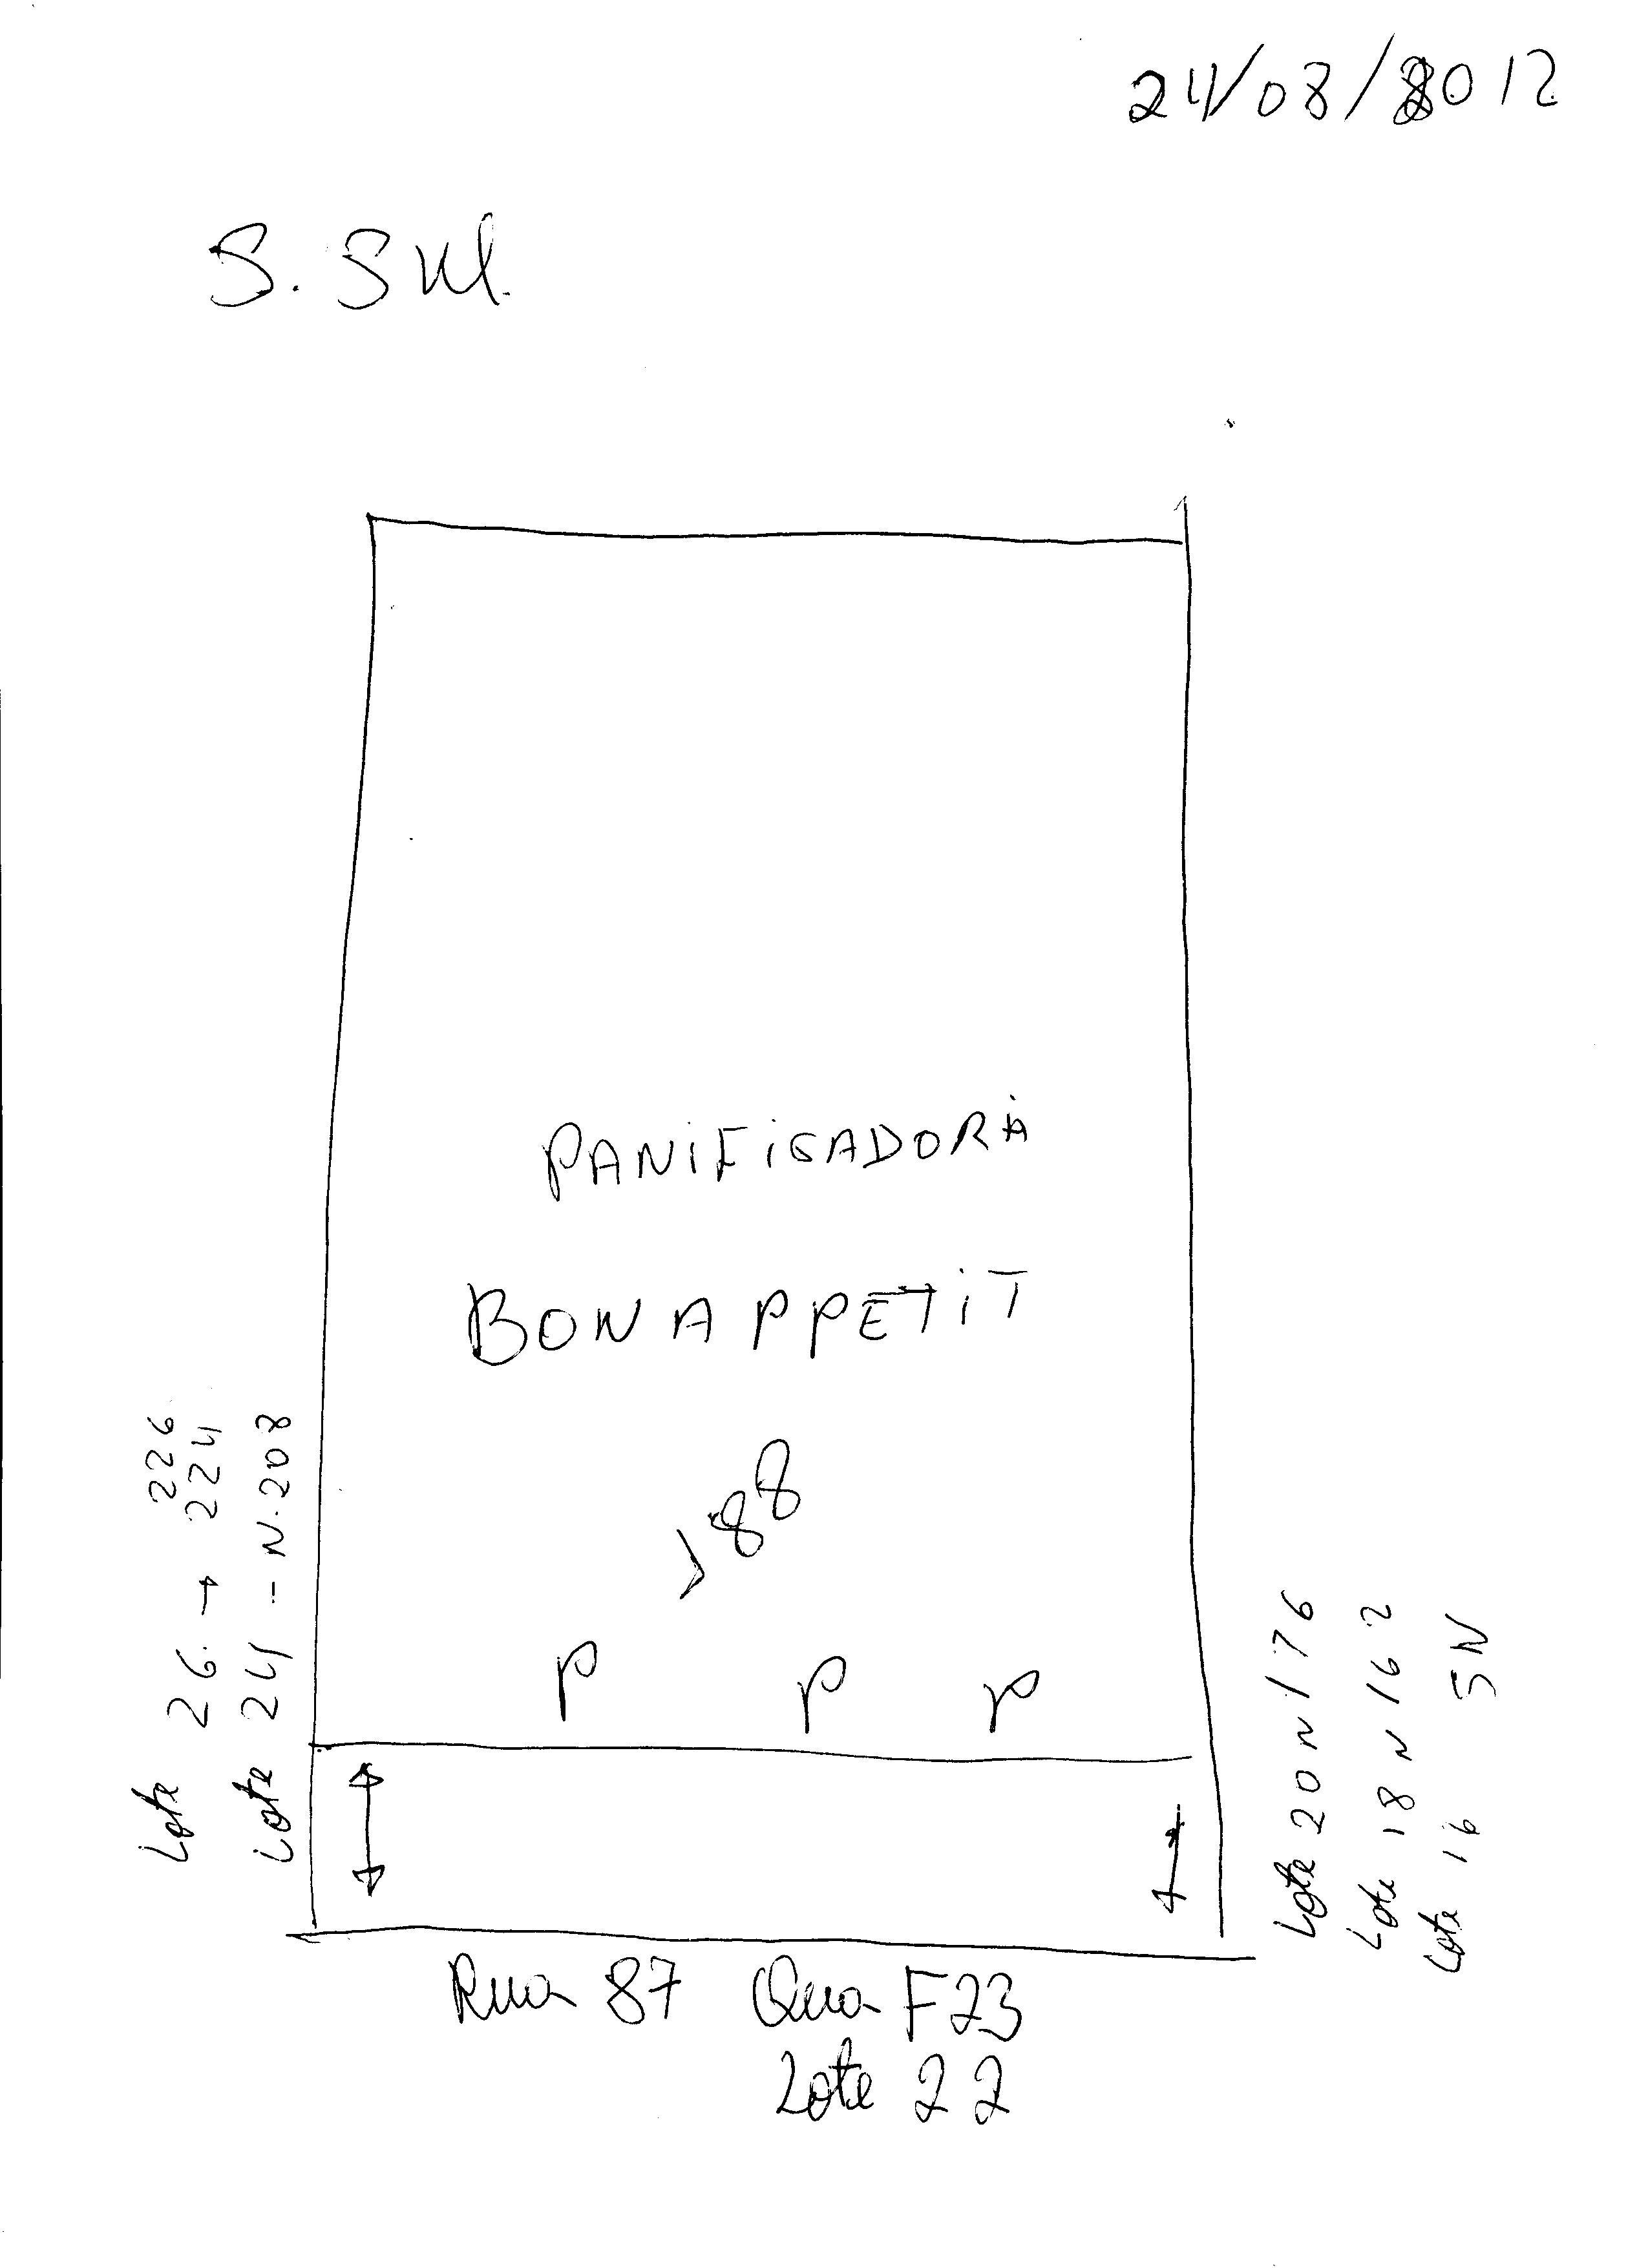 24/08/2012
S. SUL.
PANIFICADORA
BON APPETIT
188
P P P
226
Lote 26 → 224
Lote 24 - N. 208
Lote 20 N 176
Lote 18 N 162
Lote 16 SN
Rua 87 Qua F23
Lote 22